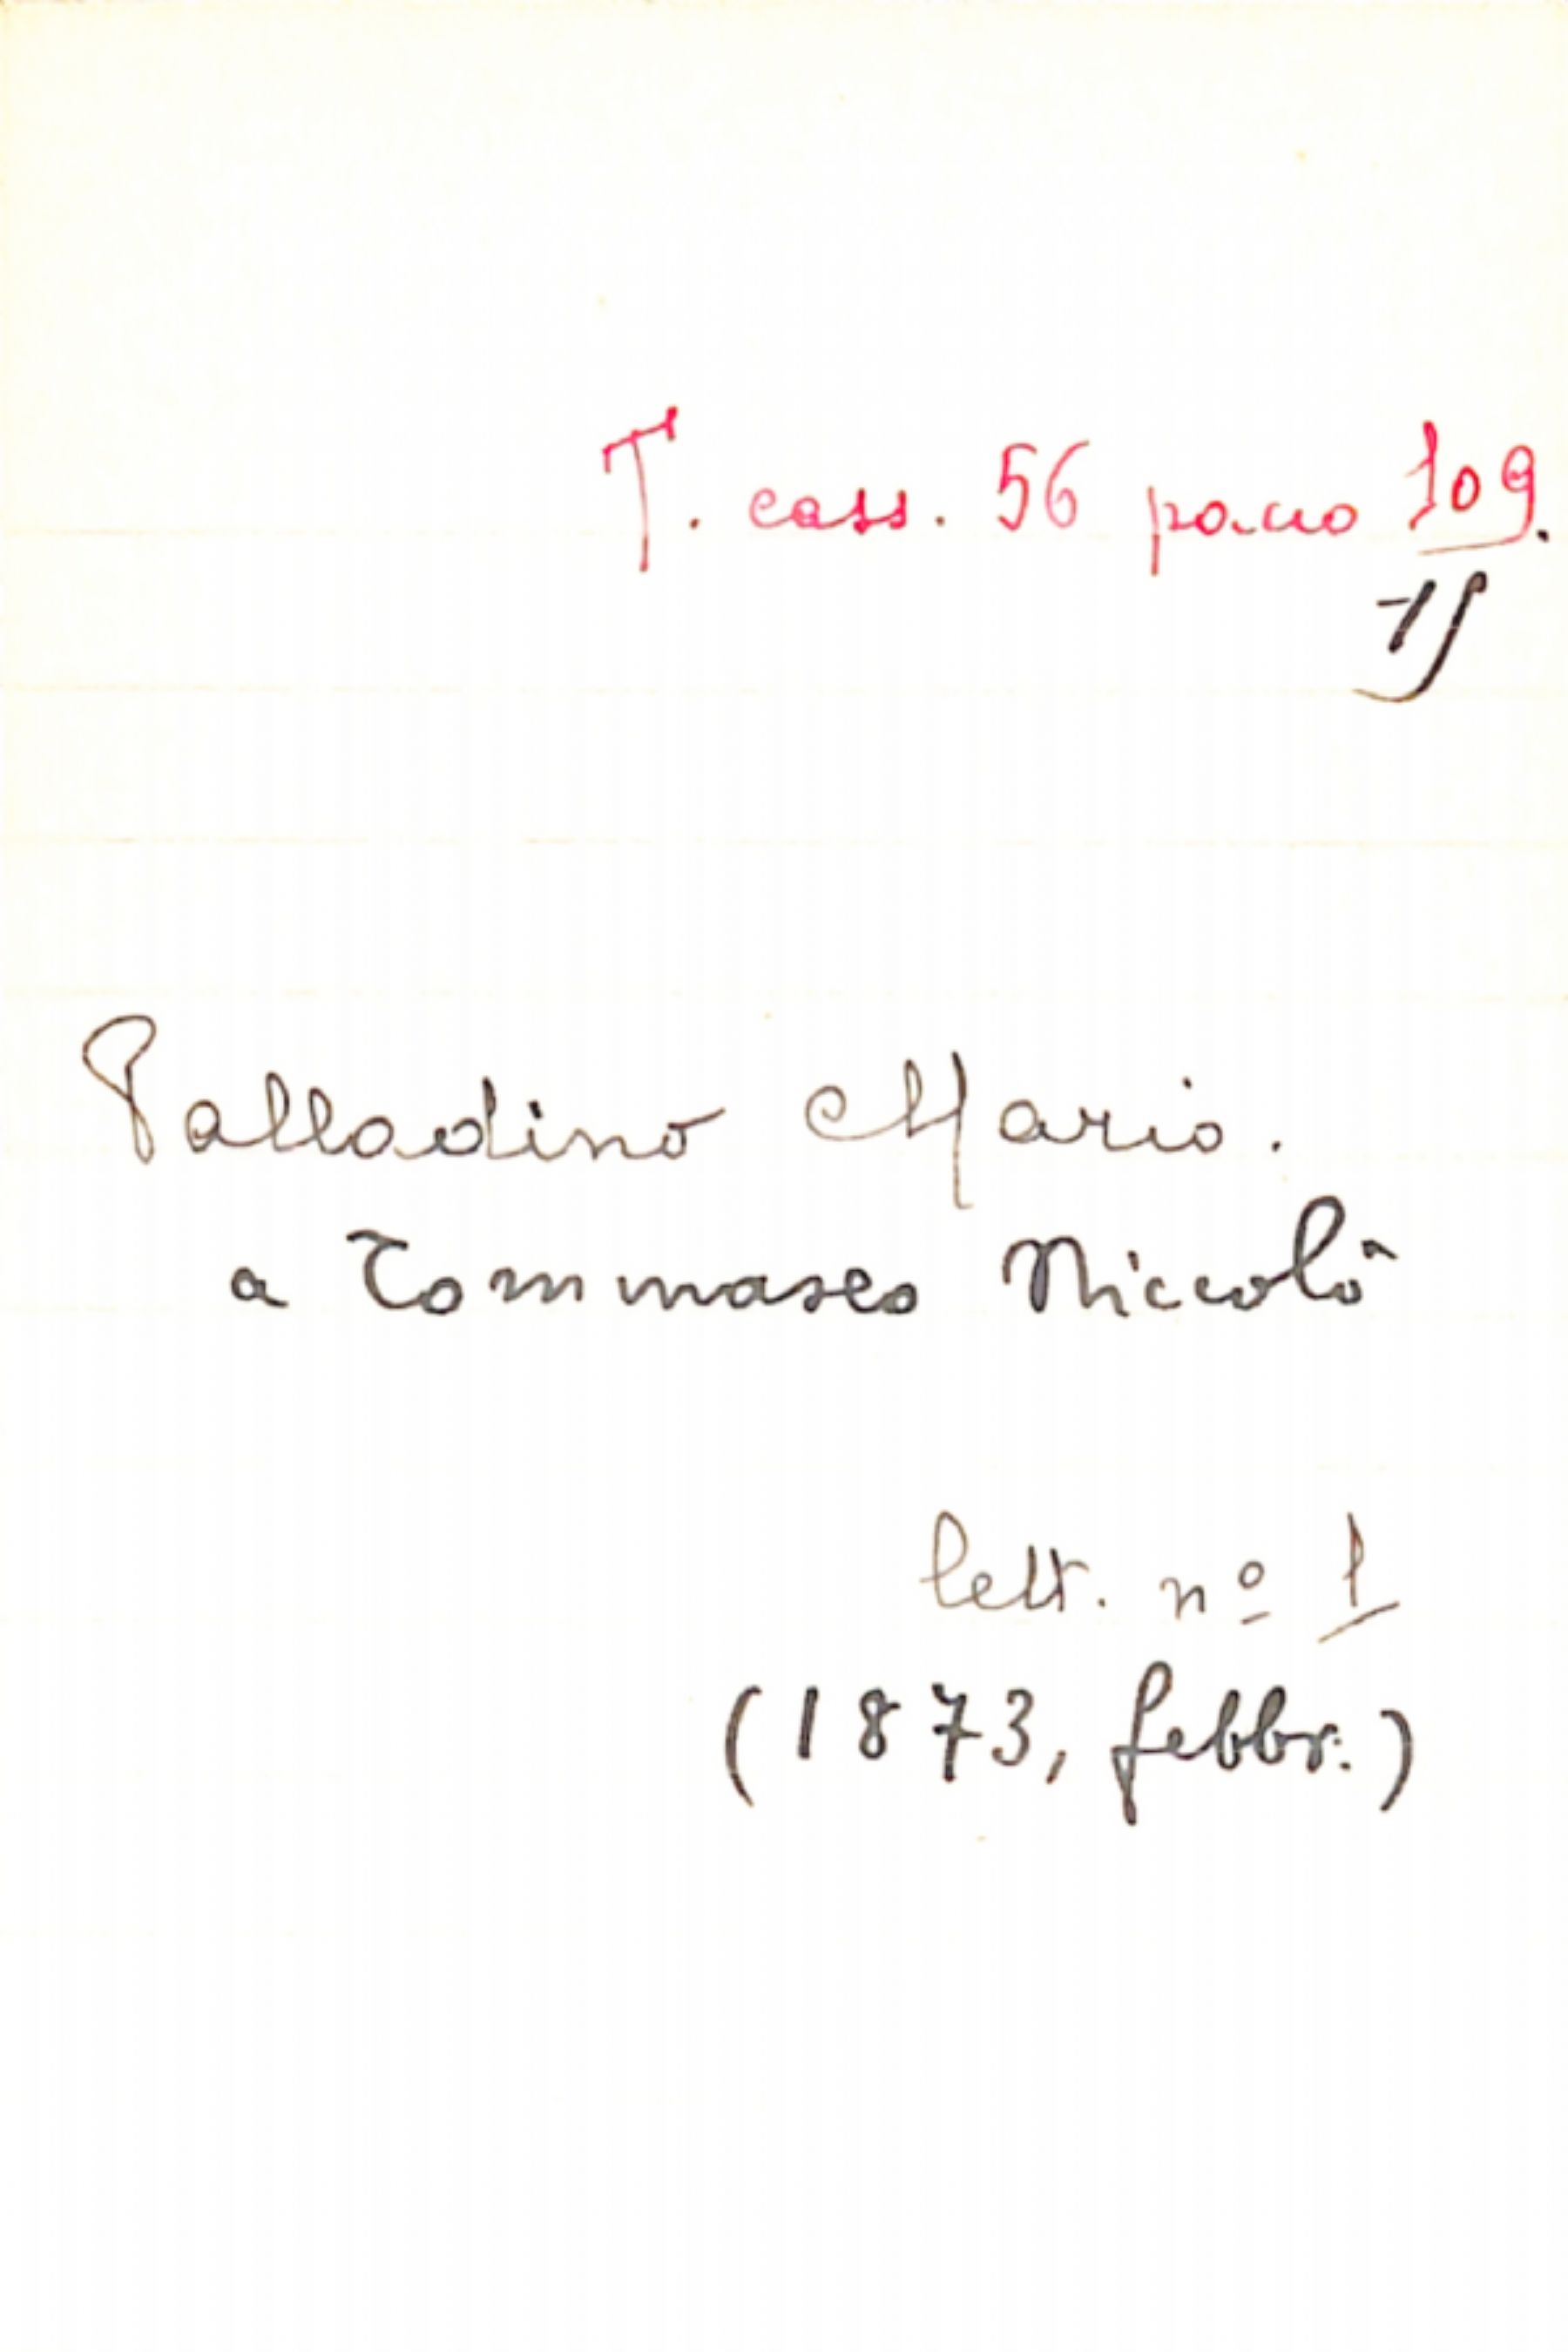 T. cass. 56 pacco 109.
15
Palladino Mario.
a Tommaseo Niccolò
lett. nº 1
(1873, febbr.)